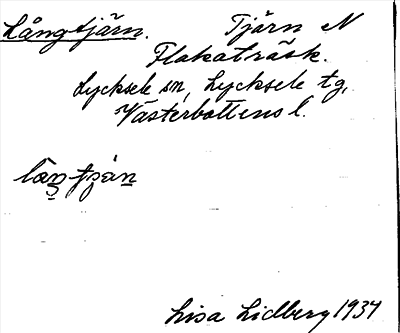 Långtjärn. Tjärn N
Flakaträsk.
Lycksele sn, Lycksele tg,
Västerbottens l.
Lisa Lidberg 1934